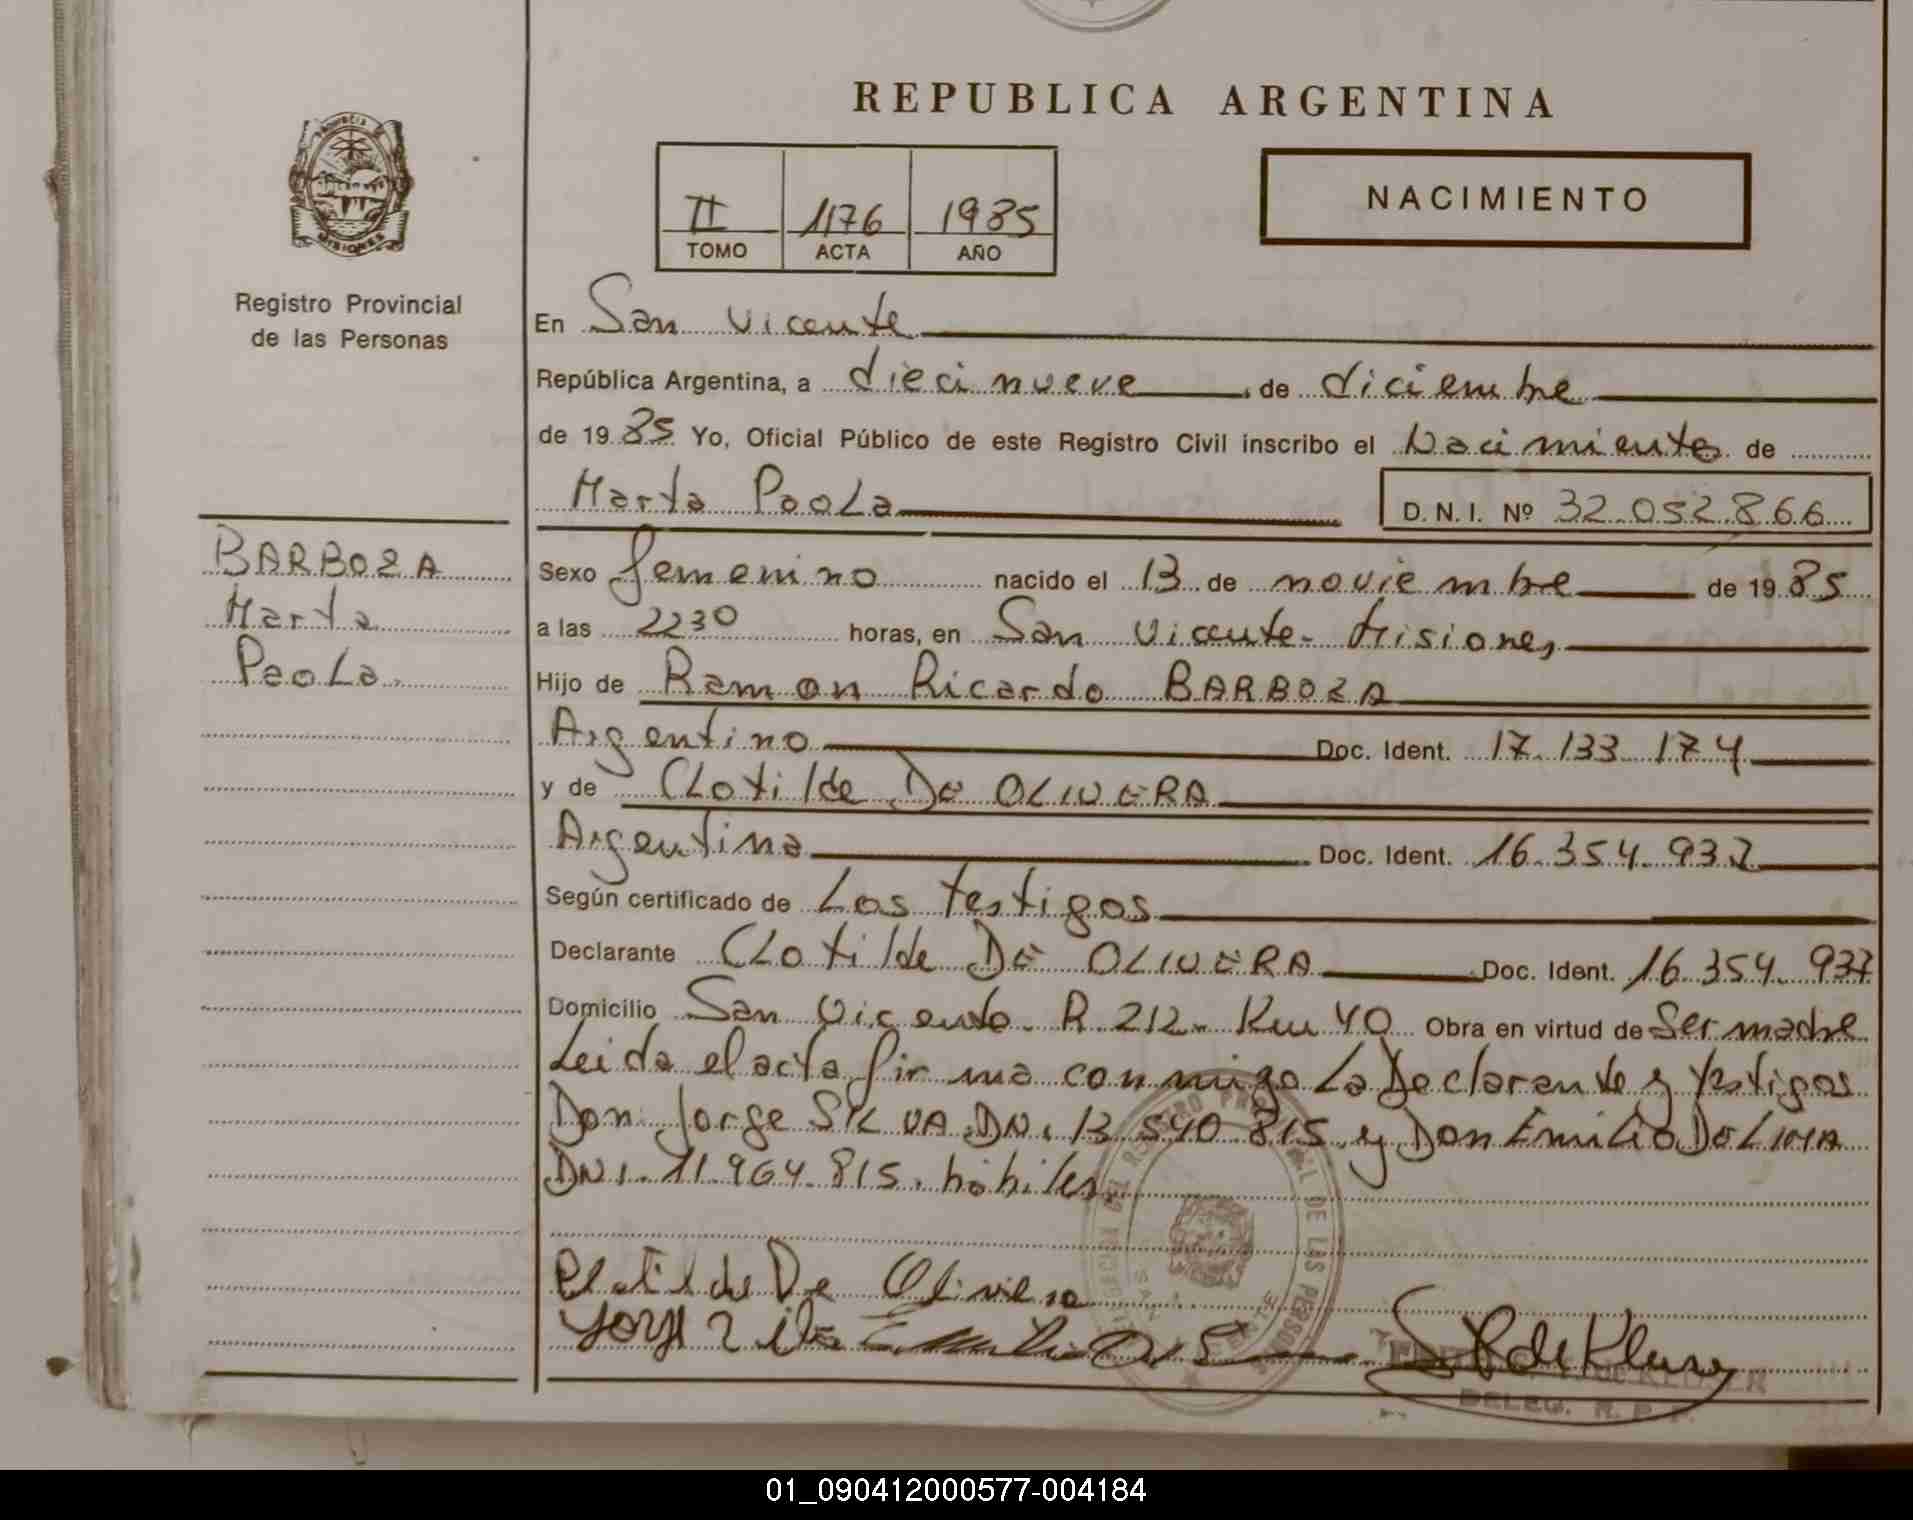 REPUBLICA ARGENTINA
PROVINCIA DE
MISIONES
Registro Provincial
de las Personas
II 1176 1985
TOMO ACTA AÑO
NACIMIENTO
En San Vicente
República Argentina, a diecinueve de diciembre
de 1985 Yo, Oficial Público de este Registro Civil inscribo el Nacimiento de
Marta Paola D.N.I. Nº 32.052.866
BARBOZA
Marta
Paola.
Sexo femenino nacido el 13 de noviembre de 1985
a las 2230 horas, en San Vicente - Misiones
Hijo de Ramon Ricardo BARBOZA
Argentino Doc. Ident. 17.133.174
y de CLotilde DE OLIVERA
Argentina Doc. Ident. 16.354.937
Según certificado de Los testigos
Declarante CLotilde DE OLIVERA Doc. Ident. 16.354.937
Domicilio San Vicente - R. 212 - Km 40 Obra en virtud de Ser madre
Leida el acta firma conmigo La Declarante y testigos
Don Jorge SILVA DNI. 13.540.815 y Don Emilio DE LIMA
DNI. 11.964.815. hábiles.
Clotilde De Olivera
DELEG. R. P. P.
01_090412000577-004184